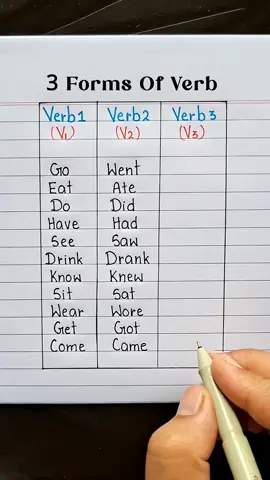 3 Forms Of Verb
Verb1 Verb2 Verb3
(V1) (V2) (V3)
Go Went
Eat Ate
Do Did
Have Had
See Saw
Drink Drank
Know Knew
Sit Sat
Wear Wore
Get Got
Come Came